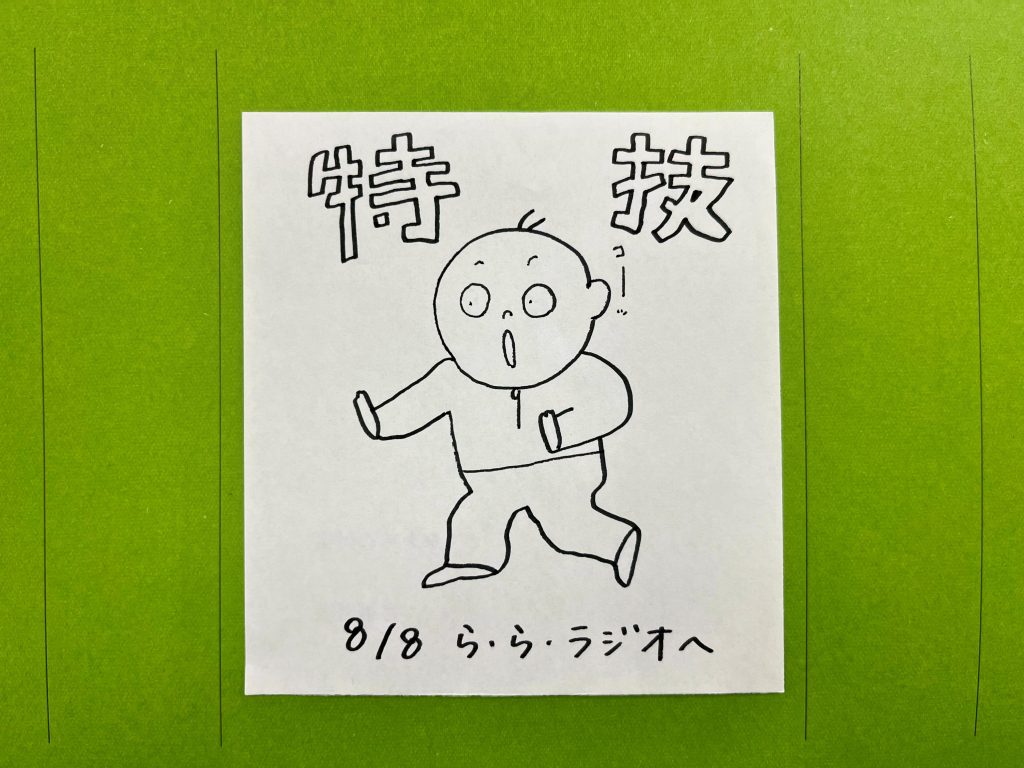 特技
コー…
8/8 ら・ら・ラジオへ